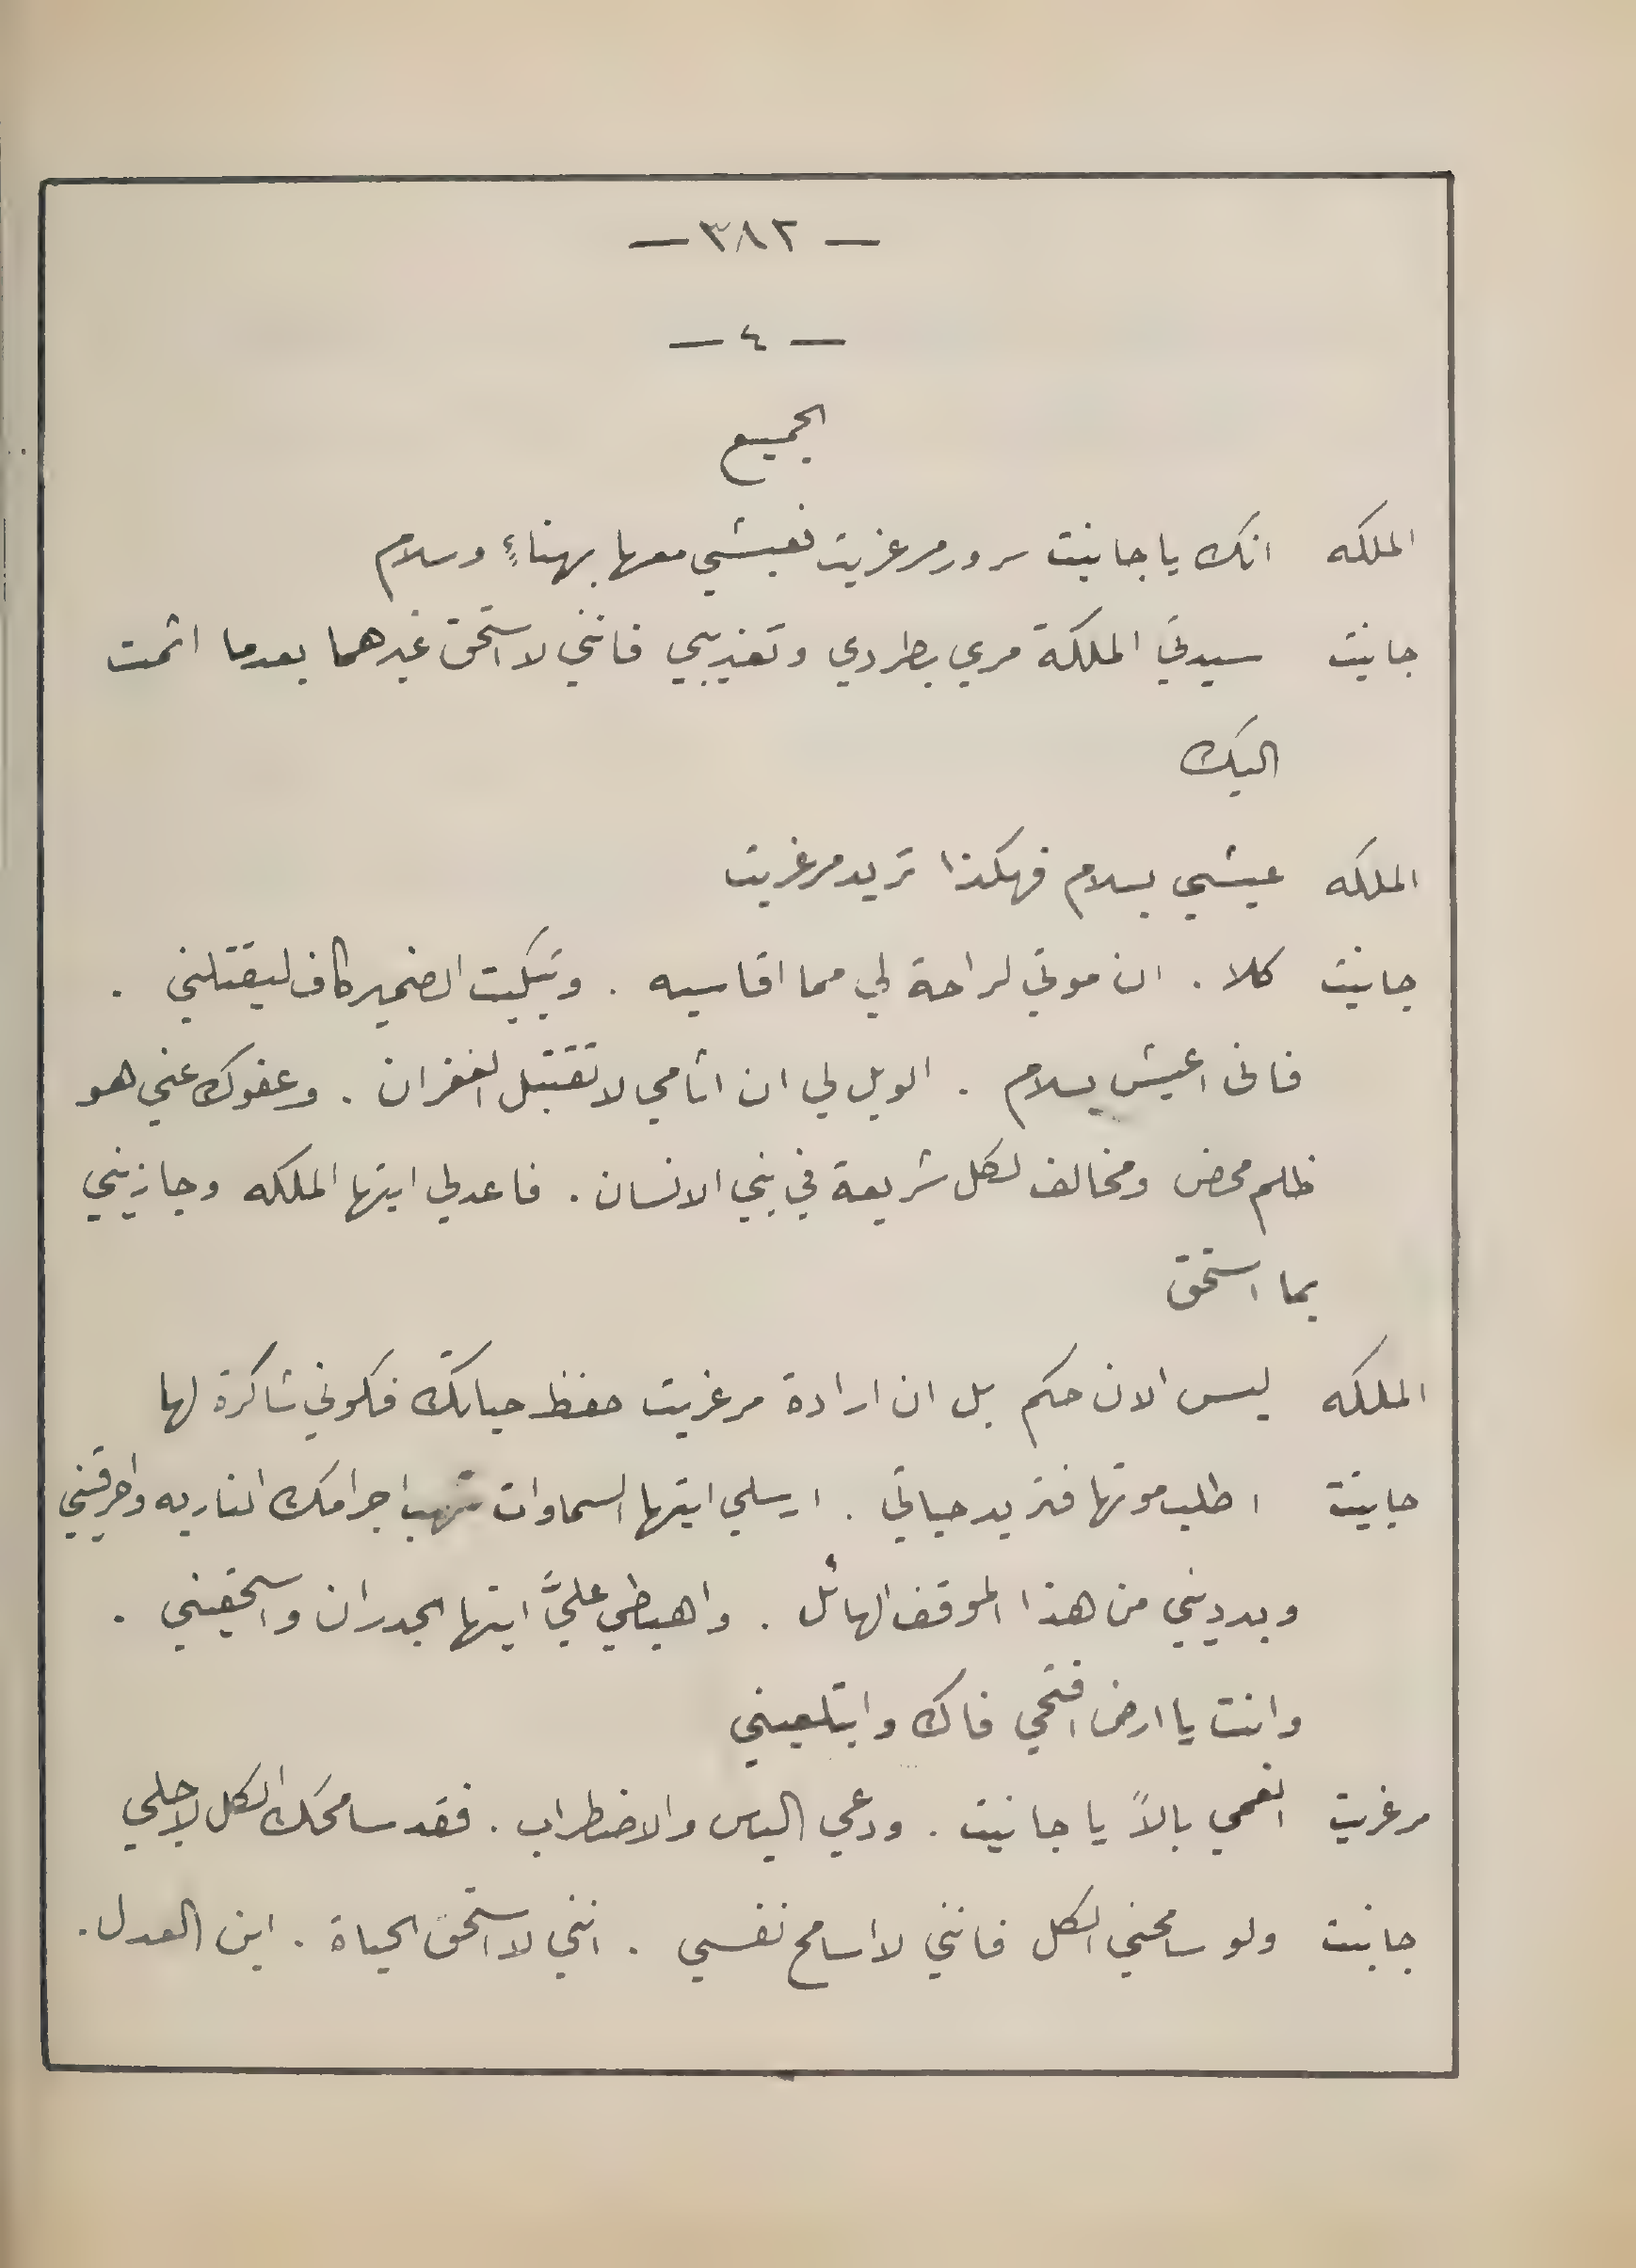 — ٣٨٢ —
— ٤ —
الجميع
الملكه انك يا جانيت سرور مرغريت فعيشي معها بهناءٍ وسلام
جانيت سيدتي الملكة مري بطردي وتعذيبي فانني لا استحق غيرهما بعدما اثمت
اليك
الملكه عيشي بسلام فهكذا تريد مرغريت
جانيت كلا . ان موتي لراحة لي مما اقاسيه . وتبكيت الضمير كاف ليقتلني .
فانى اعيش بسلام . الويل لي ان اثامي لا تقتبل الغفران . وعفوك عني هو
ظلم محض ومخالف لكل شريعة في بني الانسان . فاعدلي ايتها الملكه وجازيني
بما استحق
الملكه ليس الان حكم بل ان ارادة مرغريت حفظ حياتك فكوني شاكرة لها
جانيت اطلب موتها فتريد حياتي . ارسلي ايتها السماوات اجرامك الناريه واحرقيني
وبدديني من هذا الموقف الهائل . واهبطي عليَّ ايتها الجدران واسحقيني .
وانت يا ارض افتحي فاك وابتلعيني
مرغريت انعمي بالاً يا جانيت . ودعي الياس والاضطراب . فقد سامحك الكل لاجلي
جانيت ولو سامحني الكل فانني لا اسامح نفسي . انني لا استحق الحياة . اين العدل .